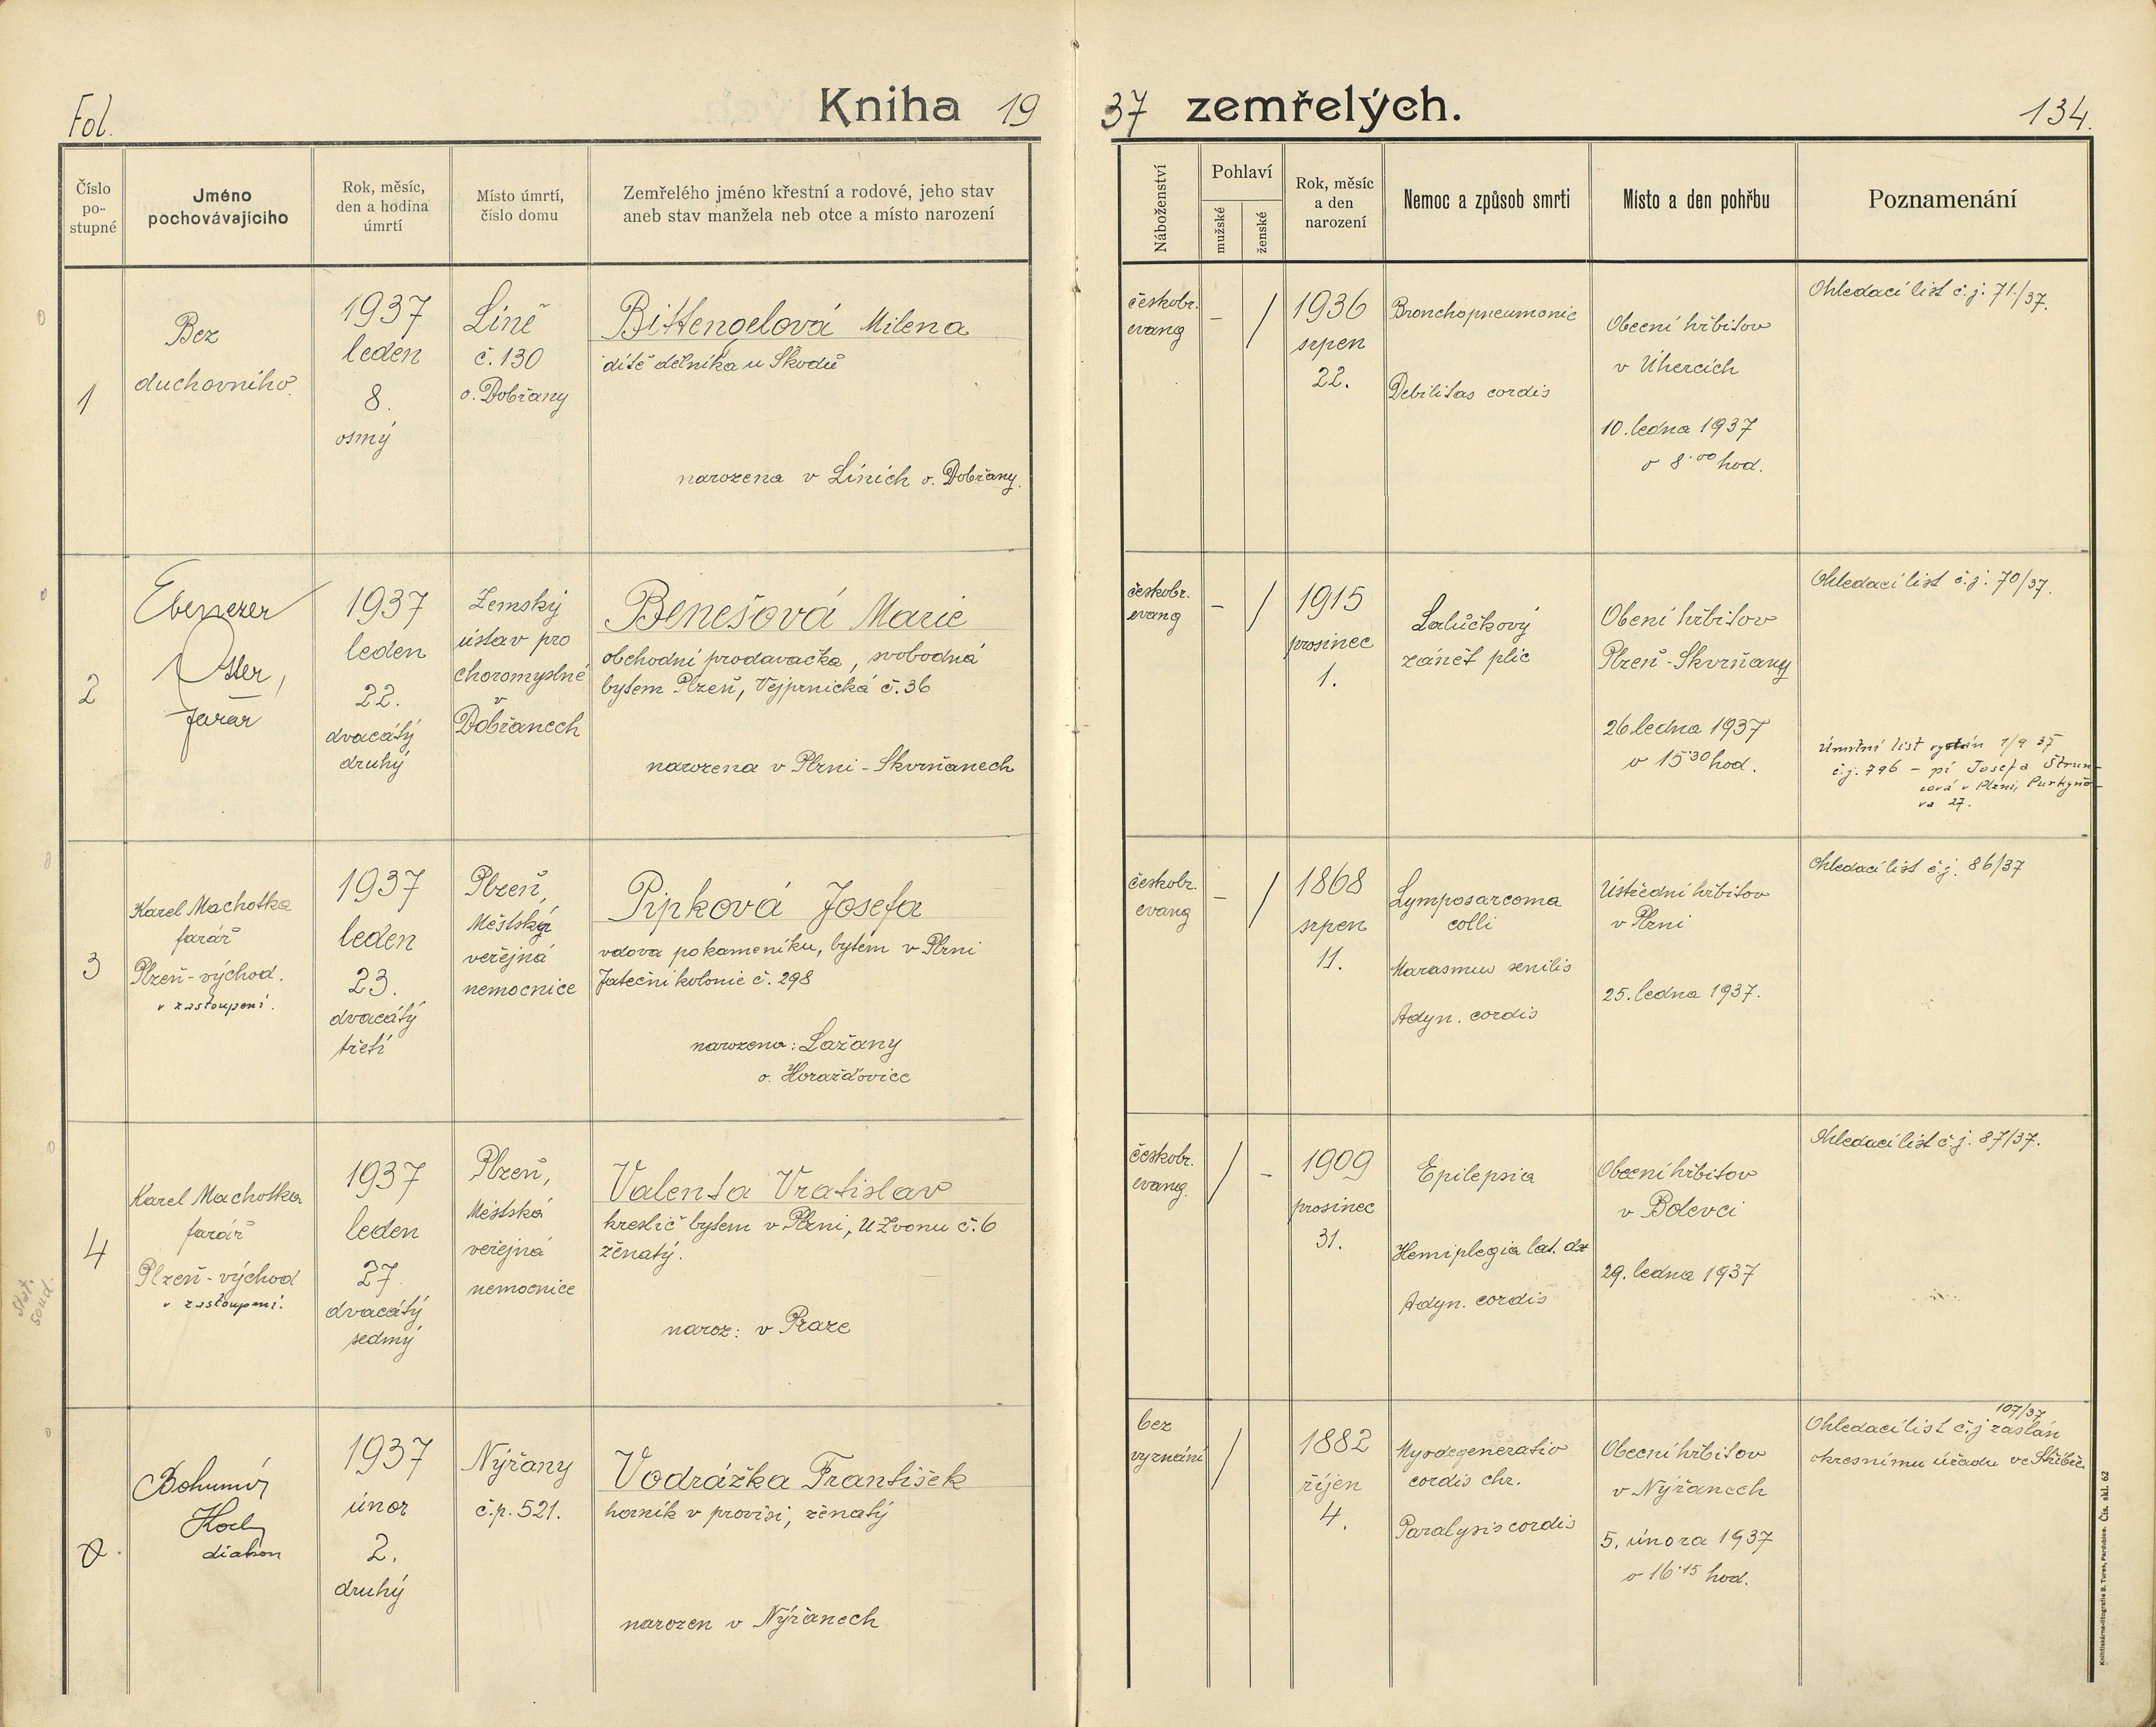 Fol.
Kniha 19
37 zemřelých.
134.
Číslo po-stupné
Jméno pochovávajícího
Rok, měsíc, den a hodina úmrtí
Místo úmrtí, číslo domu
Zemřelého jméno křestní a rodové, jeho stav
aneb stav manžela neb otce a místo narození
Náboženství
Pohlaví
mužské
ženské
Rok, měsíc a den narození
Nemoc a způsob smrti
Místo a den pohřbu
Poznamenání
1
Bez
duchovního.
1937
leden
8.
osmý
Líně
č. 130
o. Dobřany
Bittengelová Milena
dítě dělníka u Škodů
narozena v Líních o. Dobřany.
českobr.
evang
–
/
1936
srpen
22.
Bronchopneumonie
Debilitas cordis
Obecní hřbitov
v Úhercích
10. ledna 1937
o 8.00 hod.
Ohledací list č. j. 71/37.
2
Ebenezer
farář
1937
leden
22.
dvacátý
druhý
Zemský
ústav pro
choromyslné
v
Dobřanech
Benešová Marie
obchodní prodavačka, svobodná
bytem Plzeň, Vejprnická č. 36
narozena v Plzni-Skvrňanech
českobr.
evang
–
/
1915
prosinec
1.
Lalůčkový
zánět plic
Obení hřbitov
Plzeň-Skvrňany
26 ledna 1937
o 15.30 hod.
Ohledací list č. j. 70/37.
Úmrtní list vydán 1/9 37
č.j. 796 – pí Josefa Štrun-
cová v Plzni, Purkyňo-
va 27.
3
Karel Machotka
farář
Plzeň-východ.
v zastoupení.
1937
leden
23.
dvacátý
třetí
Plzeň,
Městská
veřejná
nemocnice
Pipková Josefa
vdova po kameníku, bytem v Plzni
Jateční kolonie č. 298
narozena: Lažany
o. Horažďovice
českobr.
evang
–
/
1868
srpen
11.
Lymposarcoma
colli
Marasmus senilis
Adyn. cordis
Ústřední hřbitov
v Plzni
25. ledna 1937.
Ohledací list č.j. 86/37
4
Karel Machotka
farář
Plzeň-východ
v zastoupení.
1937
leden
27
dvacátý
sedmý
Plzeň,
Městská
veřejná
nemocnice
Valenta Vratislav
kreslič bytem v Plzni, U Zvonu č. 6
ženatý.
naroz: v Praze
českobr.
evang.
/
–
1909
prosinec
31.
Epilepsia
Hemiplegia lat. dx
Adyn. cordis
Obecní hřbitov
v Bolevci
29. ledna 1937
Ohledací list č. j. 87/37.
Stát.
soud.
Bohumír
diakon
1937
únor
2.
druhý
Nýřany
č.p. 521.
Vodrážka František
horník v provisi, ženatý
narozen v Nýřanech
bez
vyznání
/
1882
říjen
4.
Myodegeneratio
cordis chr.
Paralysis cordis
Obecní hřbitov
v Nýřanech
5. února 1937
o 16.15 hod.
107/37
Ohledací list č.j zaslán
okresnímu úřadu ve Stříbře.
Knihtiskárna-litografie B. Turek, Pardubice. Čís. skl. 62